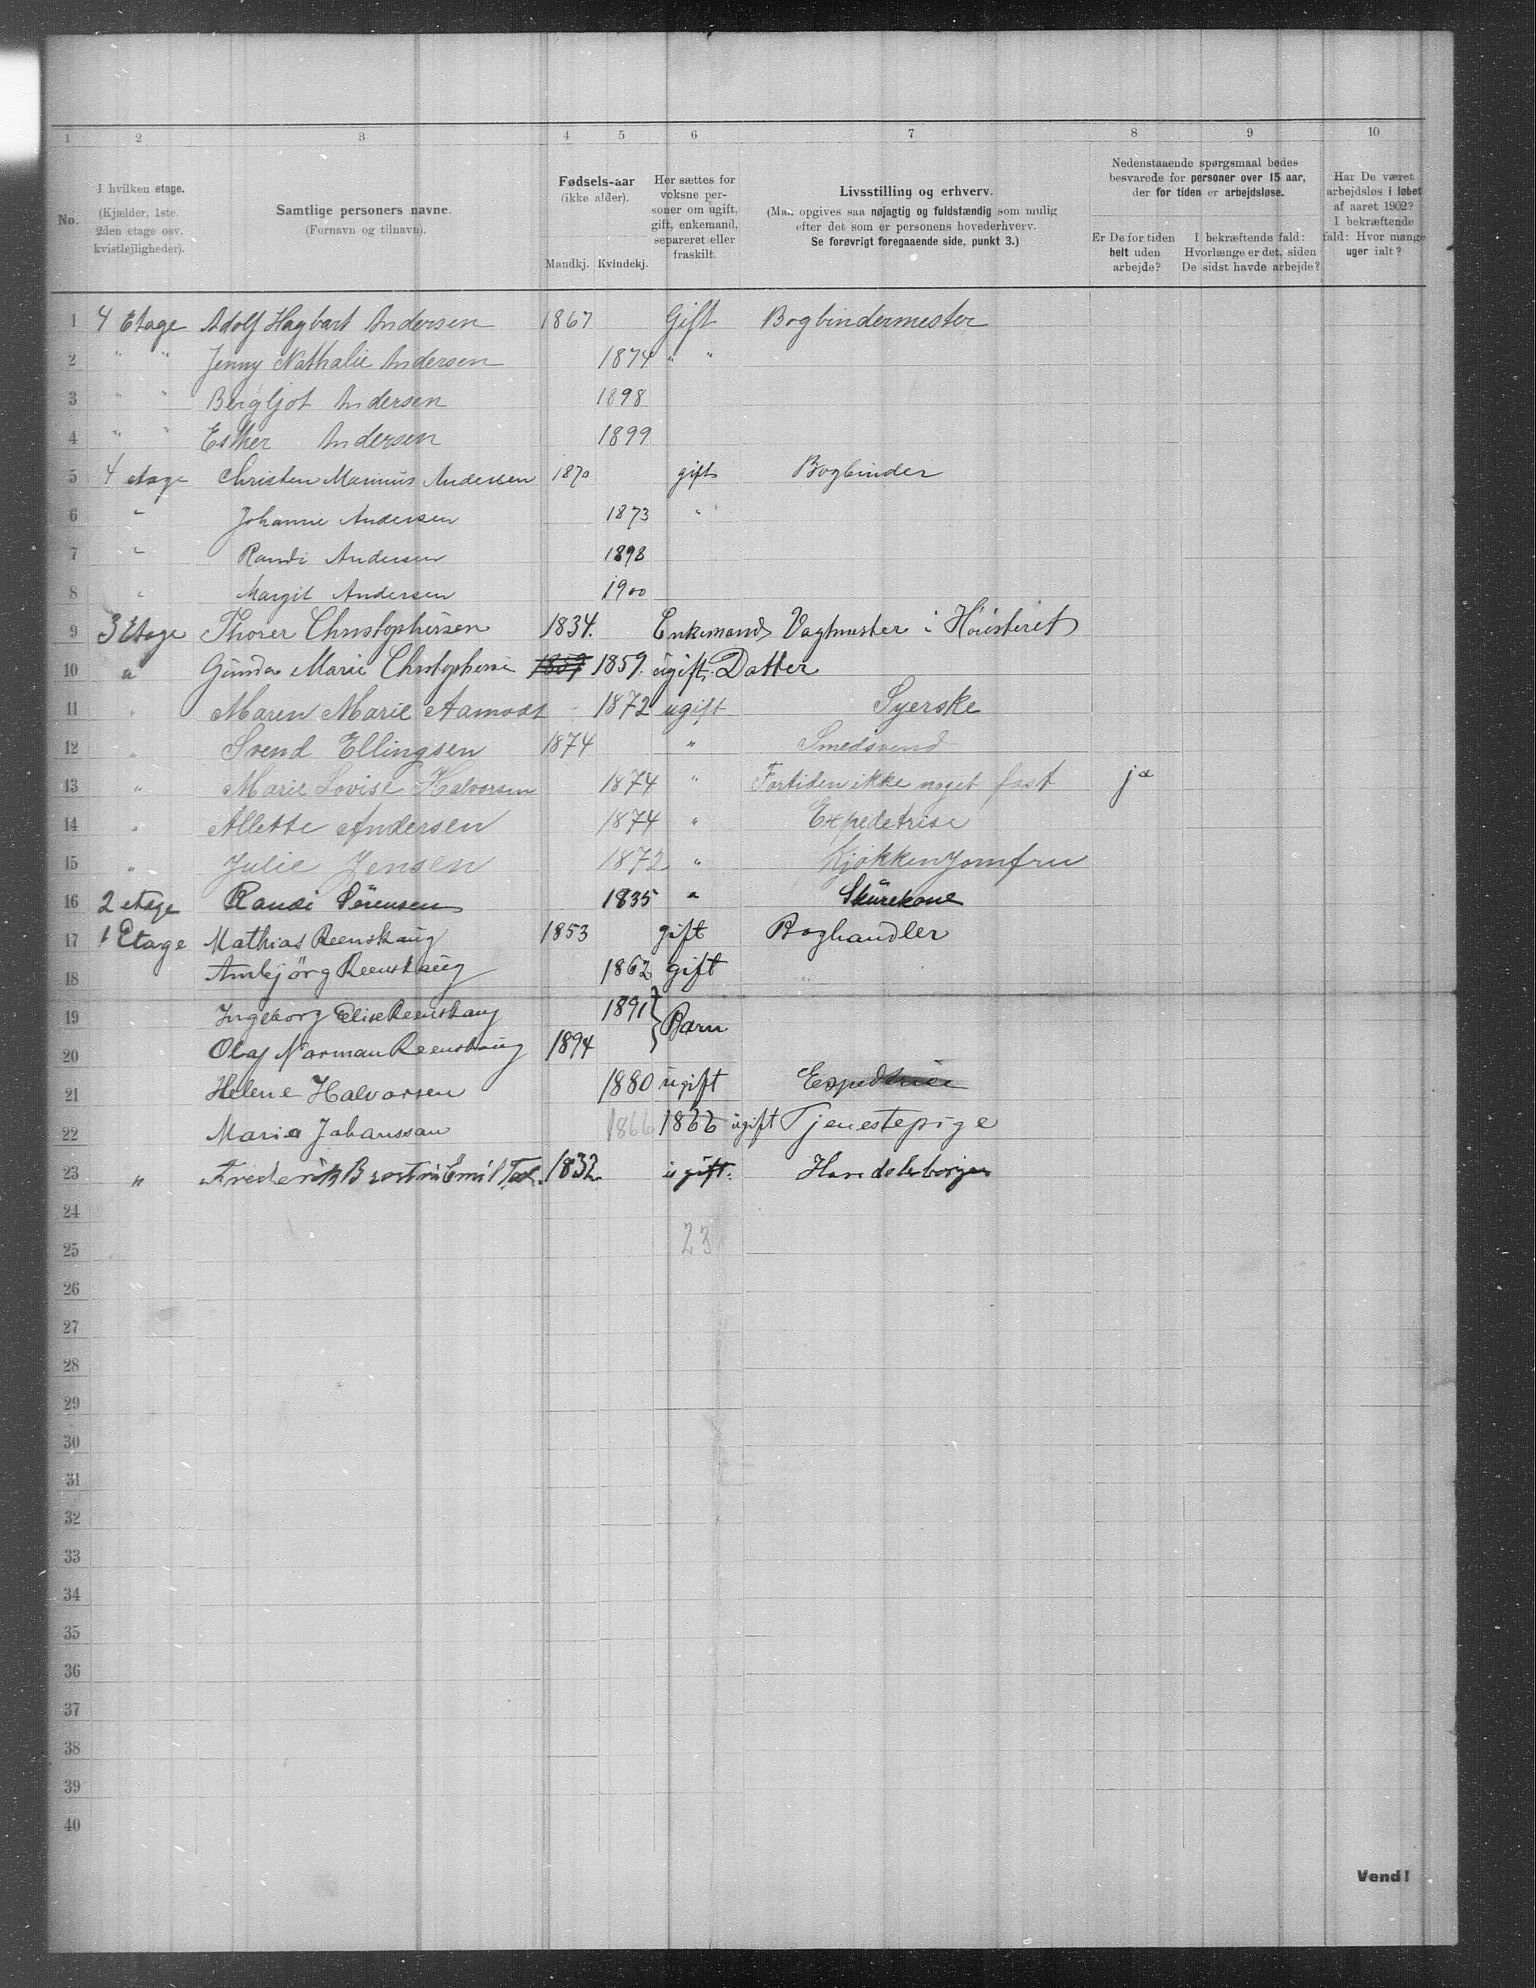 1 2 3 4 5 6 7 8 9 10
No.
I hvilken etage.
(Kjælder, 1ste.
2den etage osv.
kvistlejligheder).
Samtlige personers navne.
(Fornavn og tilnavn).
Fødsels-aar
(ikke alder).
Mandkj. Kvindekj.
Her sættes for
voksne per-
soner om ugift,
gift, enkemand,
separeret eller
fraskilt.
Livsstilling og erhverv.
(Man opgives saa nøjagtig og fuldstændig som mulig
efter det som er personens hovederhverv.
Se forøvrigt foregaaende side, punkt 3.)
Nedenstaaende spørgsmaal bedes
besvarede for personer over 15 aar,
der for tiden er arbejdsløse.
Er De for tiden
helt uden
arbejde?
I bekræftende fald:
Hvorlænge er det, siden
De sidst havde arbejde?
Har De været
arbejdsløs i løbet
af aaret 1902?
I bekræftende
fald: Hvor mange
uger ialt?
1 4 Etage Adolf Hagbart Andersen 1867 Gift Bogbindermester
2 " " Jenny Nathalie Andersen 1874 " "
3 " " Bergljot Andersen 1898
4 " " Esther Andersen 1899
5 4 etage Christen Marinius Andersen 1870 gift Bogbinder
6 " Johanne Andersen 1873 "
7 " Randi Andersen 1898
8 " Margit Andersen 1900
9 3 Etage Thorer Christophersen 1834. Enkemand Vagtmester i Høiesteret
10 " Gunda Marie Christophersen 1859 1859. ugift. Datter
11 " Maren Marie Aamodt 1872 ugift Syerske
12 " Svend Ellingsen 1874 " Smedsvend
13 " Marie Lovise Halvorsen 1874 " Fortiden ikke noget fast ja
14 " Allette Andersen 1874 " Expedetrise
15 " Julie Jensen 1872 " Kjøkkenjomfru
16 2 etage Randi Sørensen 1835 " Skurekone
17 1 Etage Mathias Reenskaug 1853 gift Boghandler
18 Ambjörg Reenskaug 1862 gift
19 Ingeborg Elise Reenskaug 1891 } Barn
20 Olaf Norman Reenskaug 1894
21 Helene Halvorsen 1880 ugift Expeditrice
22 Maria Johansson 1866 1866 ugift Tjenestepige
23 " Frederik Emil 1832 ugift. Handelsborger
24
23
25
26
27
28
29
30
31
32
33
34
35
36
37
38
39
40
Vend!